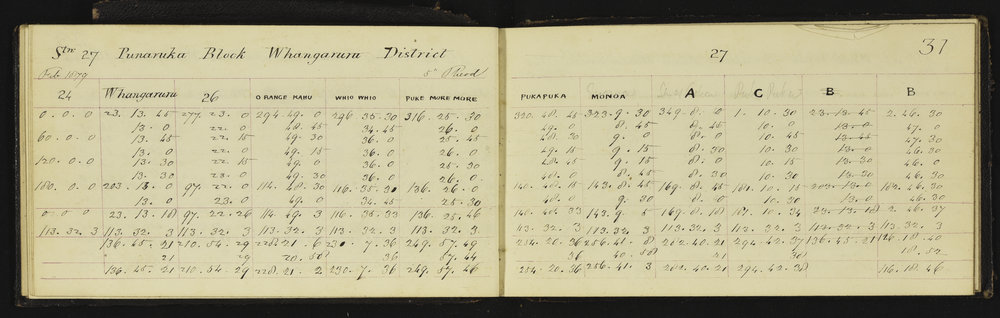 Stn 27 Punaruka Block Whangaruru District
27
31
Feb 1879
5" Theod
24 Whangaruru 26 ORANGE MAHU WHIO WHIO PUKE MORE MORE PUKAPUKA MONOA A C B B
0. 0. 0 23. 13. 45 277. 23. 0 294. 49. 0 296. 35. 30 316. 25. 30 320. 48. 45 323. 9. 30 349. 8. 0 1. 10. 30 23. 13. 45 2. 46. 30
13. 0 22. 0 48. 45 34. 45 26. 0 49. 0 8. 45 8. 45 10. 0 13. 0 47. 0
60. 0. 0 13. 45 22. 15 49. 30 36. 0 25. 45 48. 30 9. 0 8. 0 10. 45 13. 45 47. 30
13. 0 22. 0 49. 15 36. 0 26. 0 49. 15 9. 15 8. 30 10. 30 13. 0 46. 30
120. 0. 0 13. 30 22. 15 49. 0 36. 0 25. 30 48. 45 9. 15 8. 0 10. 15 13. 30 46. 30
13. 30 23. 0 49. 30 36. 0 26. 0 48. 0 8. 45 8. 30 10. 30 13. 30 46. 30
180. 0. 0 203. 13. 0 97. 22. 0 114. 48. 30 116. 35. 30 136. 26. 0 140. 48. 15 143. 8. 45 169. 8. 15 181. 10. 15 203. 13. 0 182. 46. 30
13. 0 23. 0 49. 0 34. 45 25. 30 48. 0 9. 30 8. 0 10. 30 13. 30 46. 30
0. 0. 0 23. 13. 18 97. 22. 26 114. 49. 3 116. 35. 33 136. 25. 46 140. 48. 33 143. 9. 5 169. 8. 18 181. 10. 34 23. 13. 18 2. 46. 37
113. 32. 3 113. 32. 3 113. 32. 3 113. 32. 3 113. 32. 3 113. 32. 3 113. 32. 3 113. 32. 3 113. 32. 3 112. 32. 3 113. 32. 3
136. 45. 21 210. 54. 29 228. 21. 6 230. 7. 36 249. 57. 49 254. 20. 36 256. 41. 8 282. 40. 21 294. 42. 37 136. 45. 21 116. 18. 40
21 29 20. 58 36 57. 44 36 40. 58 21 38 18. 52
136. 45. 21 210. 54. 29 228. 21. 2 230. 7. 36 249. 57. 46 254. 20. 36 256. 41. 3 282. 40. 21 294. 42. 38 116. 18. 46